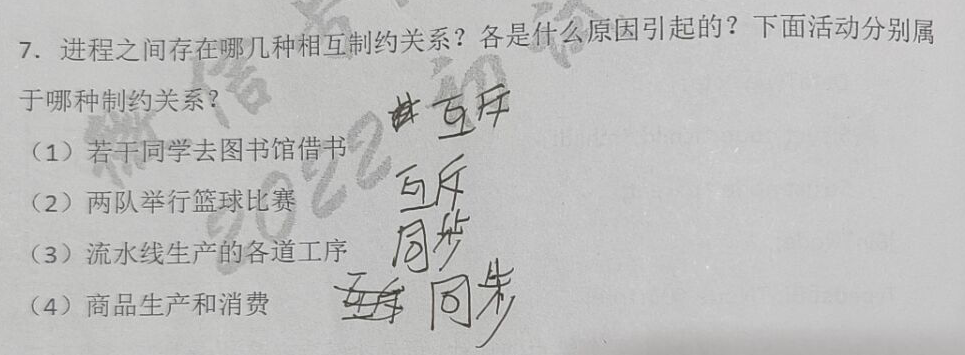 7. 进程之间存在哪几种相互制约关系？各是什么原因引起的？下面活动分别属
于哪种制约关系？
互斥
（1）若干同学去图书馆借书
（2）两队举行篮球比赛 互斥
（3）流水线生产的各道工序 同步
（4）商品生产和消费 同步
2022